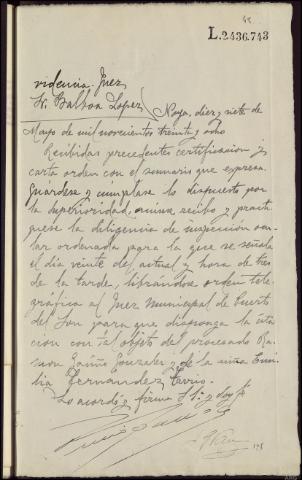 48
L.2436.743
videncia. Juez
Sr. Balboa Lopez
Noya, diez y siete de
Mayo de mil novecientos treinta y ocho
Recibidas precedentes certificacion y
carta orden con el sumario que expresa
guardese y cumplase lo dispuesto por
la superioridad, acuse recibo y practi
quese la diligencia de inspeccion ocu
lar ordenada para la que se señala
el dia veinte del actual y hora de tres
de la tarde, librandose orden tele
gráfica al Juez Municipal de Puerto
del Son para que disponga la cita
cion con tal objeto del procesado Ra
mon Gonzalez y de la niña
Fernandez
Lo acordó y firma S.Sª; doy fe